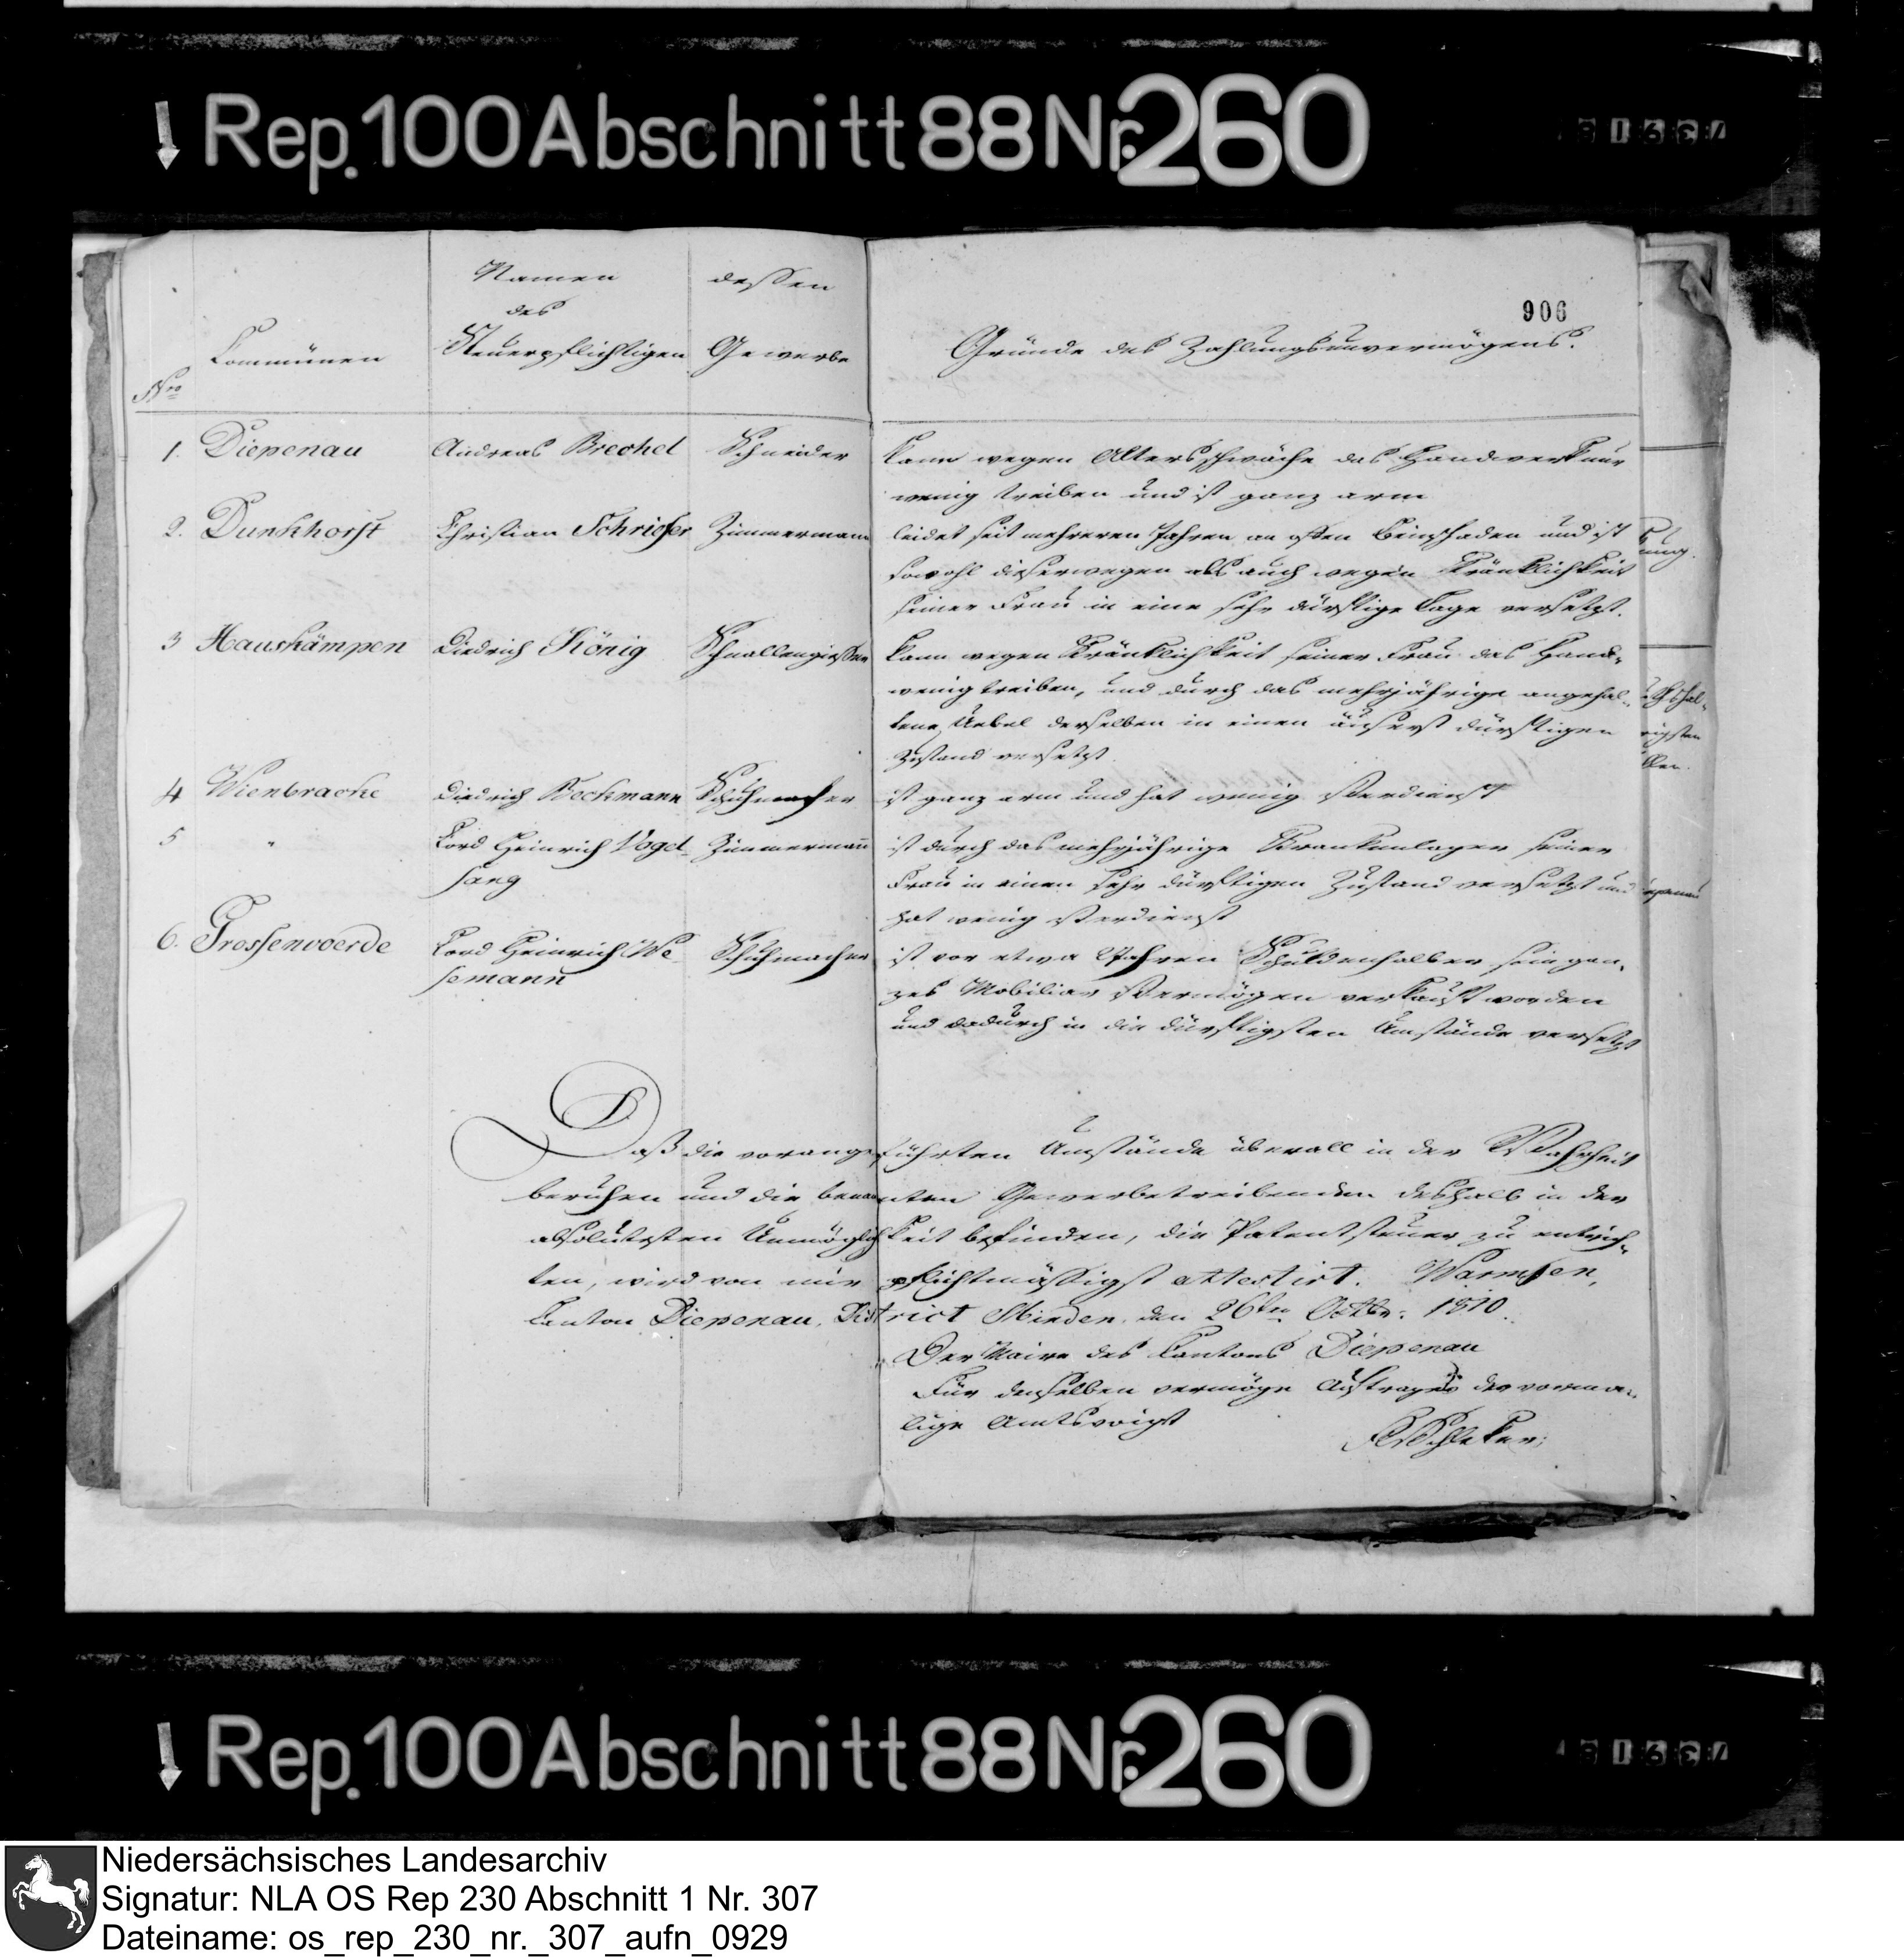 Rep. 100 Abschnitt 88 Nr. 260
906
Nro
Communen
Namen
des
Steuerpflichtigen
dessen
Gewerbe
Gründe des Zahlungsunvermögens.
1. Diepenau Andreas Brechel Schneider kann wegen Altersschwäche das Handwerk nur
wenig treiben und ist ganz arm
2. Dunkhorst Christian Schriefer Zimmermann leidet seit mehreren Jahren an offen Beinschaden und ist
sowohl dieserwegen als auch wegen Kränklichkeit
seiner Frau in eine sehr dürftige Lage versetzt.
3 Hauskämpen Diedrich König Schnallengiesser kann wegen Kränklichkeit seiner Frau das Handw.
wenig treiben, und durch das mehrjährige angehal-
tene Uebel derselben in einen äuserst dürftigen
Zustand versetzt.
4 Wienbracke Diedrich Beckmann Schuhmacher ist ganz arm und hat wenig Verdienst
5 " Cord Heinrich Vogel- Zimmermañ ist durch das mehrjährige Krankenlager seiner
sang Frau in einen sehr dürftigen Zustand versetzt und
hat wenig Verdienst
6. Grossenvoerde Cord Heinrich We- Schuhmacher ist vor etwa 2 Jahren Schuldenhalber sein gan-
semann zes Mobiliar Vermögen verkauft worden
und dadurch in die dürftigsten Umstände versetzt
Daß die vorangeführten Umstände überall in der Wahrheit
beruhen und die benannten Gewerbetreibenden deshalb in der
absolutesten Unmöglichkeit befinden, die Patentsteuer zu entrich-
ten, wird von mir pflichtmässigst attestirt. Warmsen,
Canton Diepenau, District Minden, den 26ten Octbr. 1810.
Der Maire des Cantons Diepenau
Für denselben vermöge Auftrages der vorma-
lige Amtsvoigt
Rep. 100 Abschnitt 88 Nr. 260
Niedersächsisches Landesarchiv
Signatur: NLA OS Rep 230 Abschnitt 1 Nr. 307
Dateiname: os_rep_230_nr._307_aufn_0929